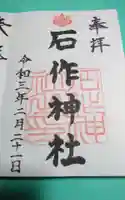 奉拝
石作神社
令和三年二月二十一日